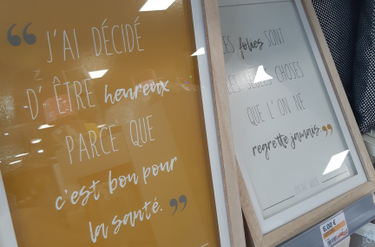 “J'AI DÉCIDÉ
D'ÊTRE heureux
PARCE QUE
c'est bon pour
la santé.”
LES folies SONT
LES SEULES CHOSES
QUE L'ON NE
regrette jamais.”